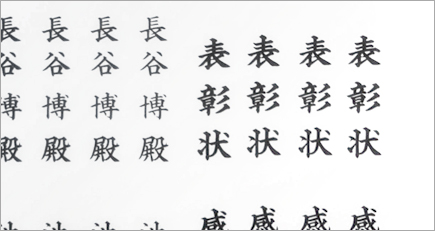 表彰状
表彰状
表彰状
表彰状
長谷博殿
長谷博殿
長谷博殿
長谷博殿
感
感
感
感